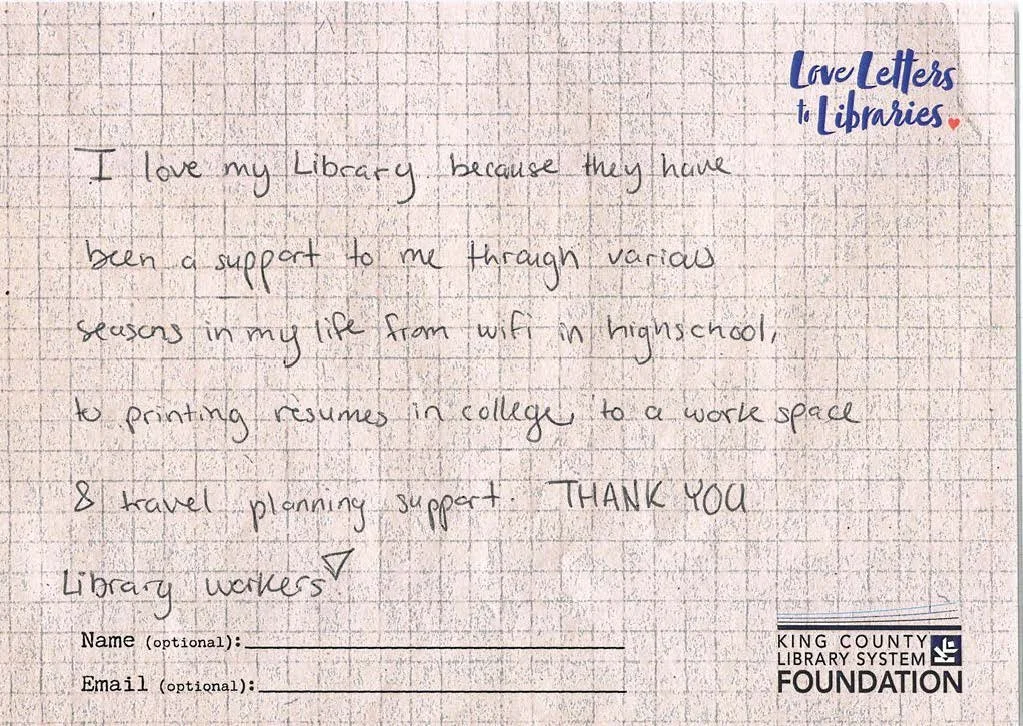 Love Letters
to Libraries
I love my Library because they have
been a support to me through various
seasons in my life from wifi in highschool,
to printing resumes in college, to a work space
& travel planning support. THANK YOU
Library workers
Name (optional):
Email (optional):
KING COUNTY
LIBRARY SYSTEM
FOUNDATION